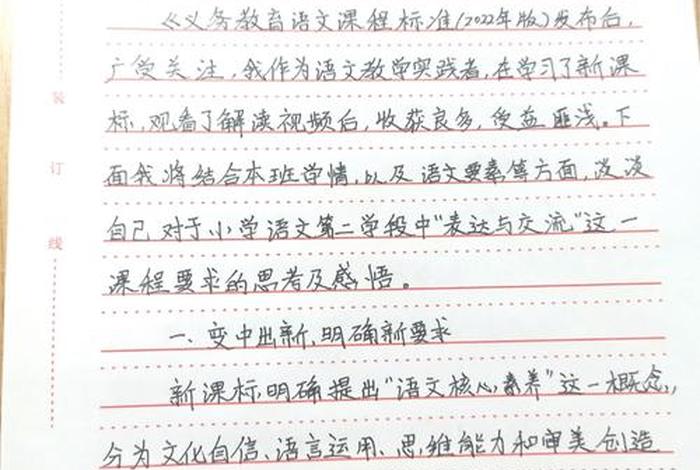 《义务教育语文课程标准(2022年版)发布后,
广受关注,我作为语文教学实践者,在学习了新课
标,观看了解读视频后,收获良多,受益匪浅。下
面我将结合本班学情,以及语文要素等方面,谈谈
自己对于小学语文第二学段中"表达与交流"这一
课程要求的思考及感悟。
一、变中出新,明确新要求
新课标,明确提出"语文核心素养"这一概念,
分为文化自信、语言运用、思维能力和审美创造
装
订
线